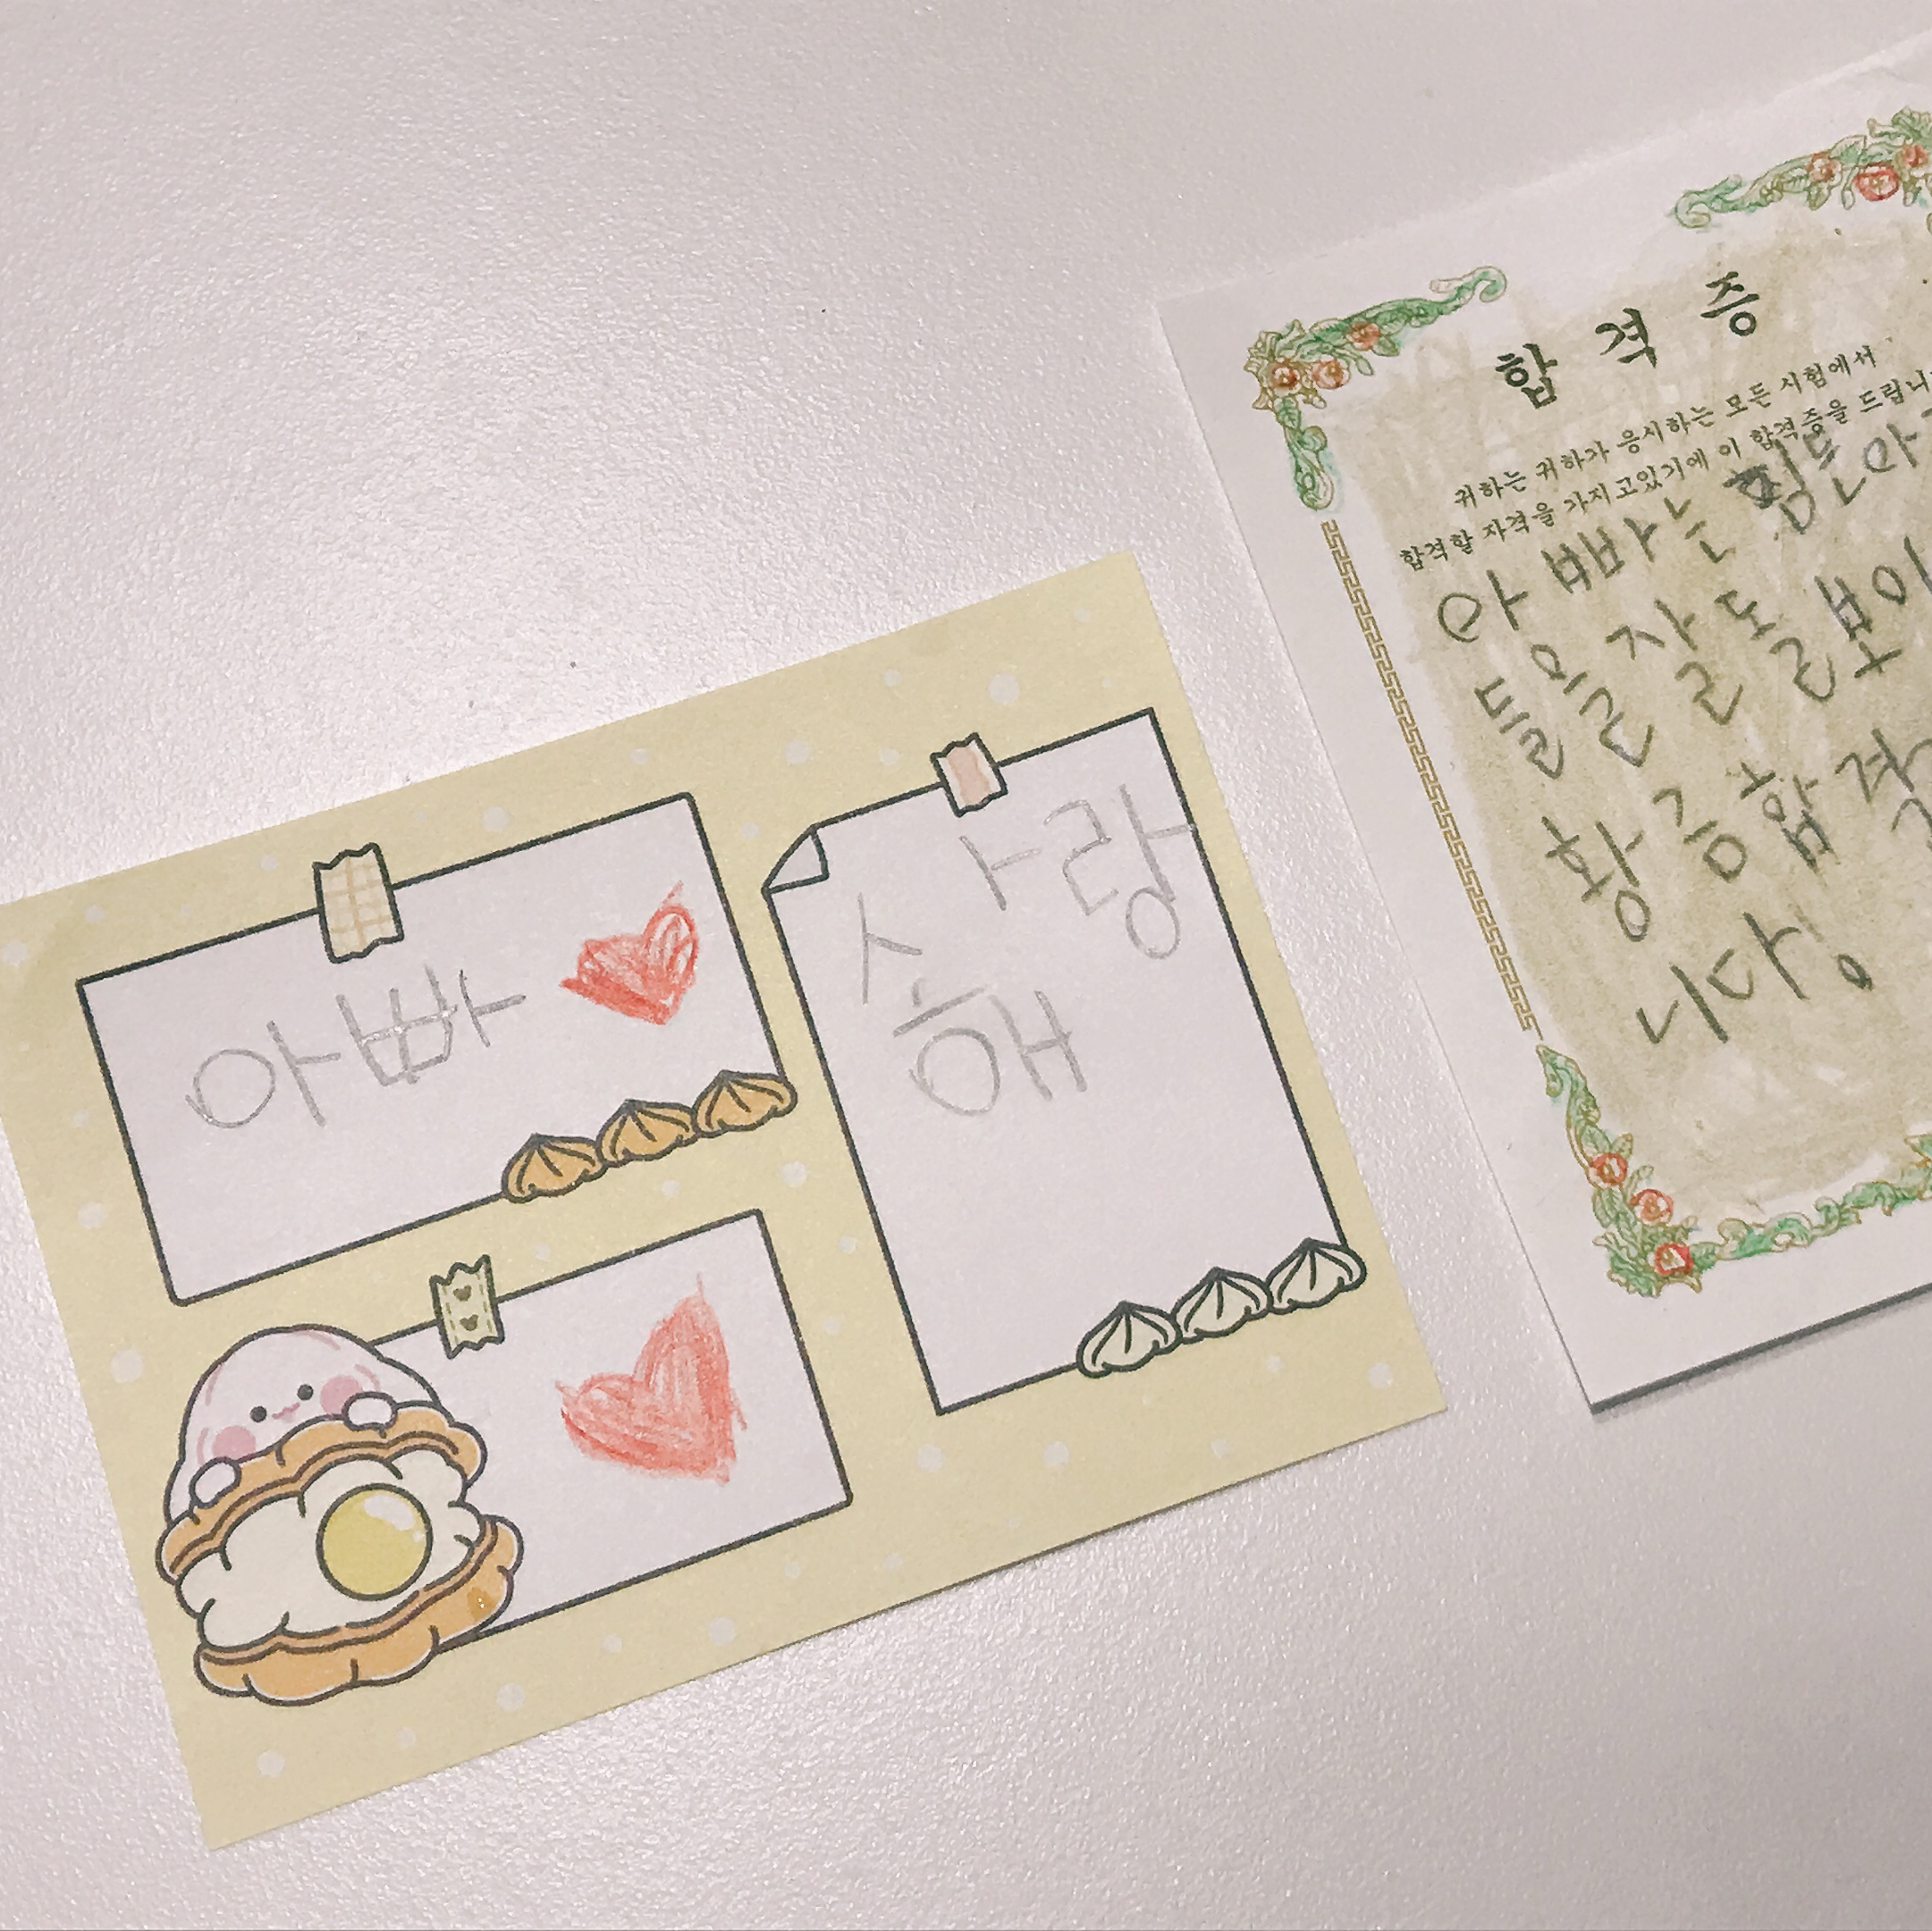 아빠
사랑
해
합격증
귀하는 귀하가 응시하는 모든 시험에서
합격할 자격을 가지고있기에 이 합격증을 드립니
아빠는 힘든 아
들을 잘 돌보이
황금합격
니다.